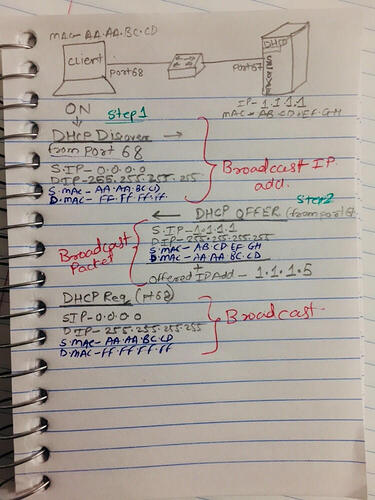 MAC- AA.AA.BC.CD
DHCP
Client
Port 68
Port 67
SERVER
IP-1.1.1.1
MAC- AB.CD.EF.GH
ON
Step1
DHCP Discover →
from Port 68
S.IP-0.0.0.0
DIP-255.255.255.255
S.MAC-AA.AA.BC.CD
D.MAC- FF.FF.FF.FF
Broadcast IP.
add.
Step2
← DHCP OFFER (from port 67
S.IP-1.1.1.1
DIP-255.255.255.255
S.MAC-AB.CD.EF.GH
D.MAC-AA.AA.BC.CD
+
Offered IP Add- 1.1.1.5
Broadcast
Packet
DHCP Req (Pt 68)
SIP-0.0.0.0
DIP-255.255.255.255
S.MAC-AA.AA.BC.CD
D.MAC-FF.FF.FF.FF
Broadcast